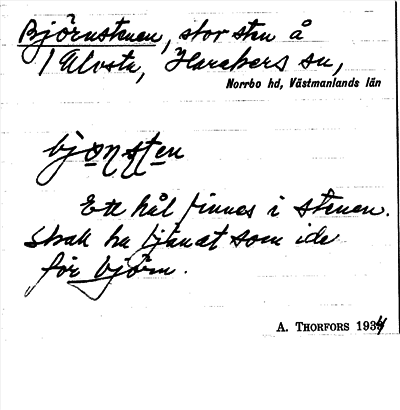 Björnstenen, stor sten å
1 Alvsta, Harakers sn,
Norrbo hd, Västmanlands län
bjo̠ŋste̠n
Ett hål finnes i stenen.
Skall ha tjänat som ide
för björn.
A. THORFORS 1934